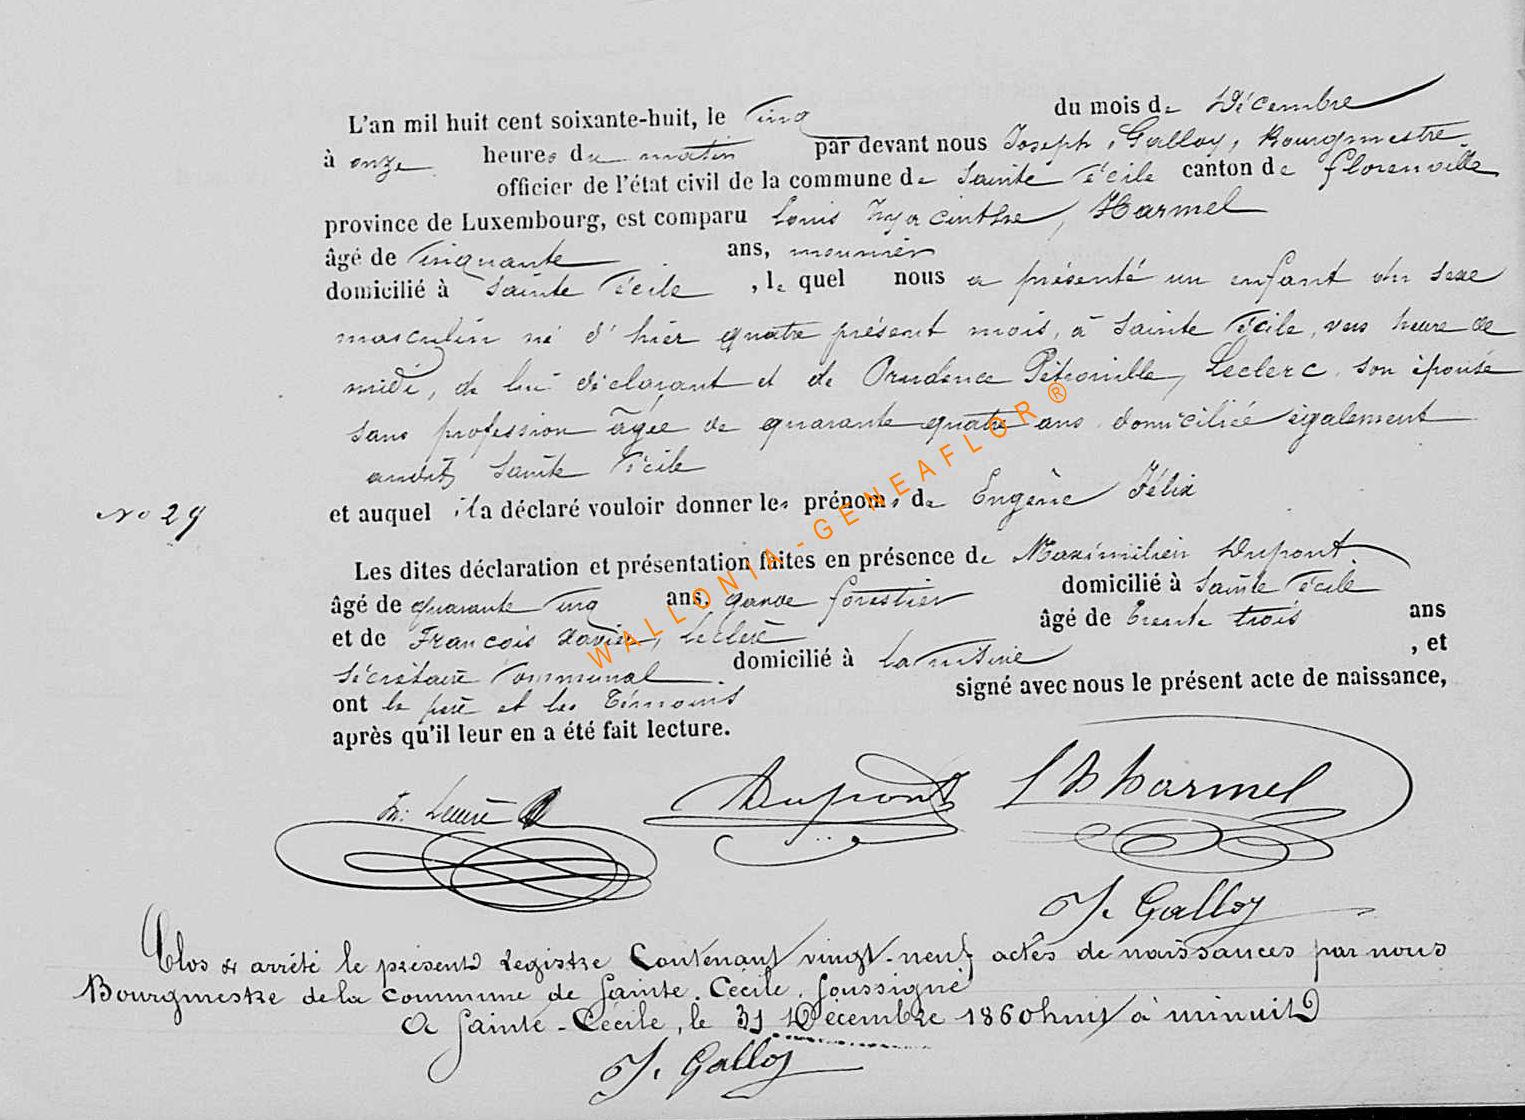 L'an mil huit cent soixante-huit, le Cinq du mois de Décembre
à onze heures du matin par devant nous Joseph, Galloy, Bourgmestre
officier de l'état civil de la commune de Sainte Cécile canton de Florenville
province de Luxembourg, est comparu Louis Hyacinthe, Harmel
âgé de Cinquante ans, meunier
domicilié à Sainte Cécile, le quel nous a présenté un enfant du sexe
masculin né d'hier quatre présent mois, à Sainte Cécile, vers heure de
midi, de lui déclarant et de Prudence Pétronille, Leclerc son épouse
sans profession âgée de quarante quatre ans domiciliée également
audit Sainte Cécile
No 29
et auquel il a déclaré vouloir donner les prénoms de Eugène Félix
Les dites déclaration et présentation faites en présence de Maximilien Dupont
âgé de quarante Cinq ans, garde forestier domicilié à Sainte Cécile
et de François Xavier, Leclere âgé de trente trois ans
Sécrétaire Communal domicilié à Lacuisine, et
ont le père et les Témoins signé avec nous le présent acte de naissance,
après qu'il leur en a été fait lecture.
Dupont
L H Harmel
J. Galloy
Clos & arrêté le présent registre Contenant vingt-neuf actes de naissances par nous
Bourgmestre de la Commune de Sainte-Cécile, Soussigné
A Sainte-Cécile, le 31 Décembre 1860huit à minuit
J. Galloy
WALLONIA-GENEAFLOR®